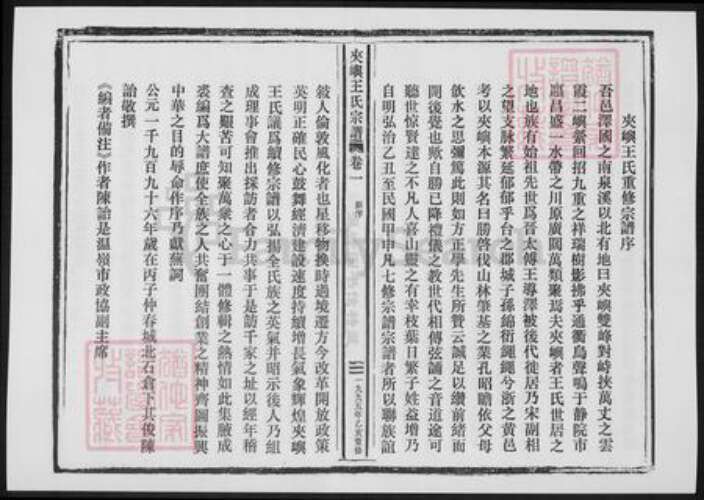 夾嶼王氏重修宗譜序
吾邑澤國之南泉溪以北有地曰夾嶼雙峰對峙挾萬丈之雲
霞二嶼縈回招九重之祥瑞樹影拂乎通衢鳥聲鳴于靜院市
廛昌盛一水帶之川原廣闊萬類聚焉夫夾嶼者王氏世居之
地也族有始祖先世爲晉太傅王導澤被後代徙居乃宋副相
之望支脉繁延郁郁乎台之郡城子孫綿衍繩繩兮浙之黄邑
考以夾嶼本源其名曰勝啓伐山林肇基之業孔昭瞻依父母
飲水之思彌篤此則如方正學先生所贊云誠足以纘前緒而
開後覺也歟自勝已降禮儀之教世代相傳弦誦之音道途可
聽世惊賢達之不凡人喜山靈之有幸枝葉日繁子姓益增乃
自明弘治乙丑至民國甲申凡七修宗譜宗譜者所以聯族誼
夾嶼王氏宗譜 卷一
新序
一 一九九五年乙亥重修
敍人倫敦風化者也星移物换時過境遷方今改革開放政策
英明正確民心鼓舞經濟建設速度持續增長氣象輝煌夾嶼
王氏議爲續修宗譜以弘揚全氏族之英氣并昭示後人乃組
成理事會推出採訪者合力共事于是訪千家之址以經年稽
查之艱苦可知聚萬衆之心于一體修輯之熱情如此集腋成
裘編爲大譜庶使全族之人共奮團結創業之精神齊圖振興
中華之目的辱命作序乃獻蕪詞
公元一千九百九十六年歲在丙子仲春城北石倉下其俊陳
詒敬撰
《編者備注》作者陳詒是温嶺市政協副主席